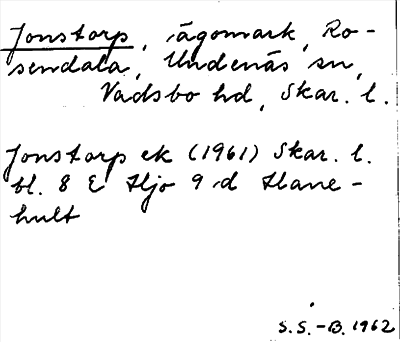 Jonstorp, ägomark, Ro-
sendala, Undenäs sn,
Vadsbo hd, Skar. l.
Jonstorp ek (1961) Skar. l.
bl. 8 E Hjo 9 d Hane-
hult
S.S.-B. 1962